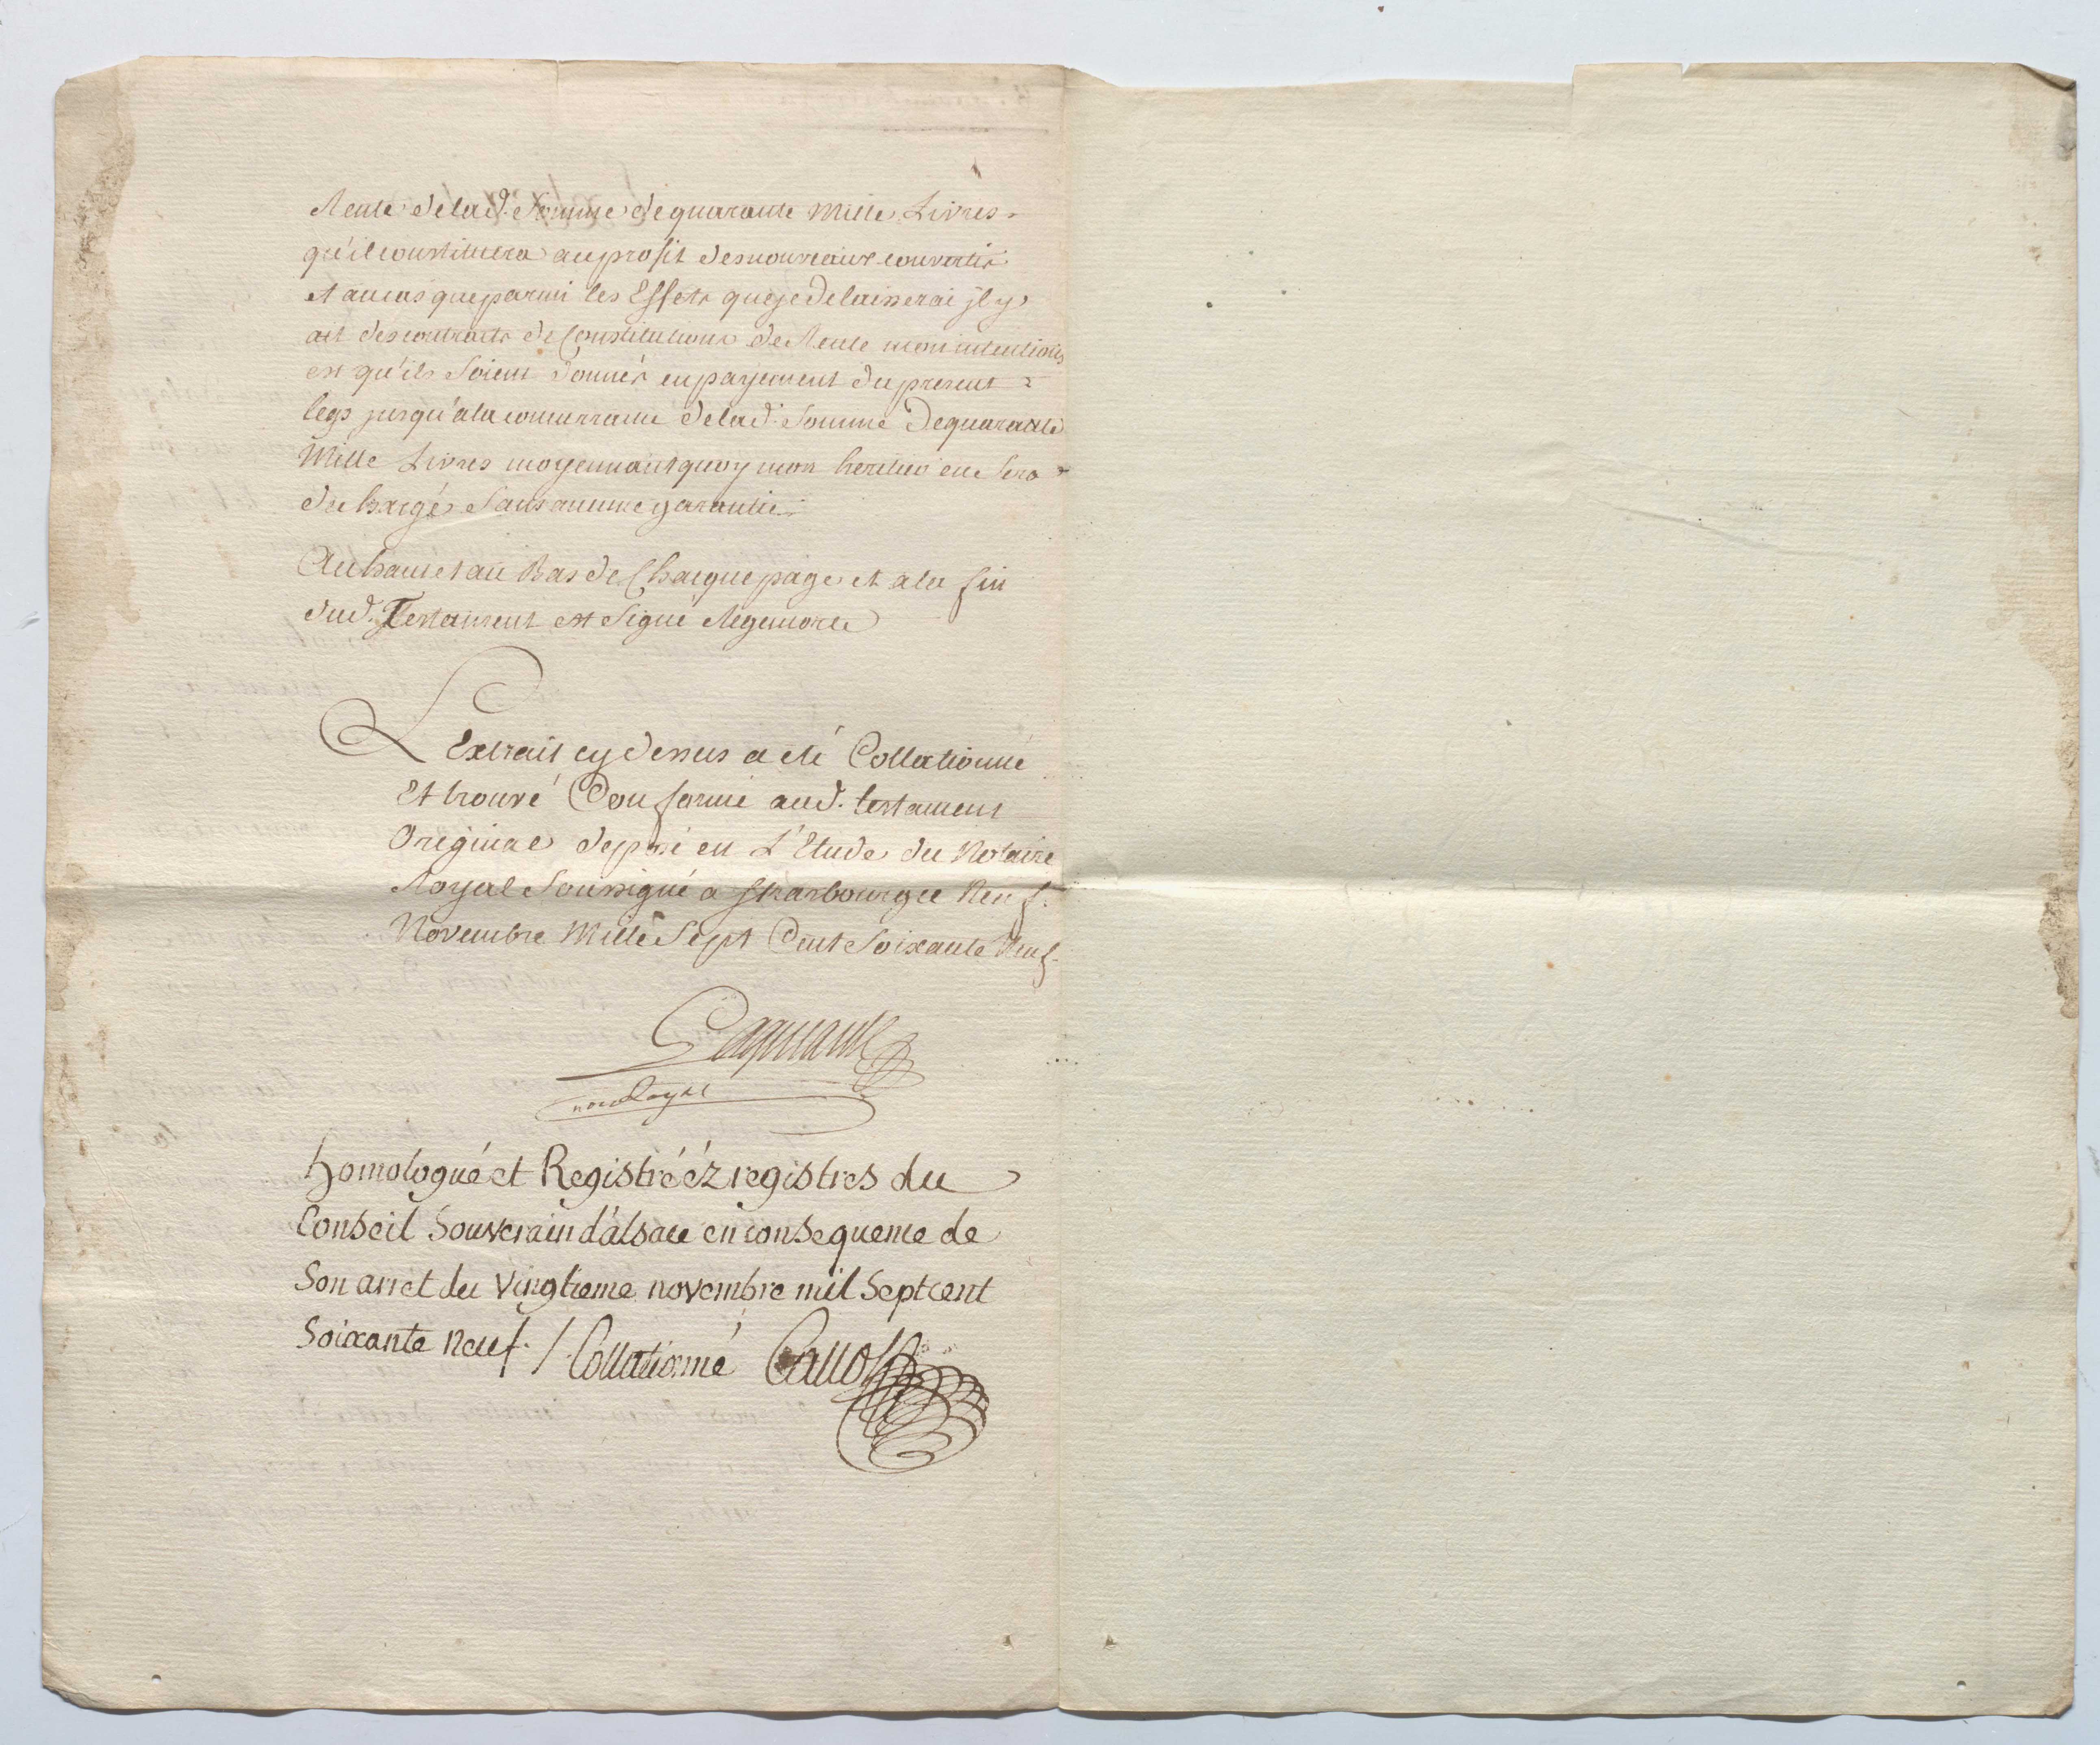 Rente de lad. Somme de quarante Mille Livres
qu'il constituera au profit des nouveaux convertis
et au cas que parmi les Effets que je delaisserai jl y
ait des contracts de Constitutions de Rente mon intention
est qu'ils Soient donnés en payement du present
legs jusqu'a la concurrance de lad. Somme de quarante
Mille Livres moyennant quoy mon heritier en Sera
dechargé Sans aucune garantie.
Au haut et au Bas de Chaque page et a la fin
dud. Testament est Signé Regemorte
L'Extrait cy dessus a eté Collationné
Et trouvé Conforme aud. testament
Original deposé en L'Etude du Notaire
Royal Soussigné a Strasbourg le Neuf.
Novembre Mille Sept Cent Soixante Neuf.
not. Royal
homologué et Registré éz registres du
Conseil Souverain d'alsace en consequence de
Son arret du vingtieme novembre mil Septcent
Soixante neuf. /. Collationné Callot